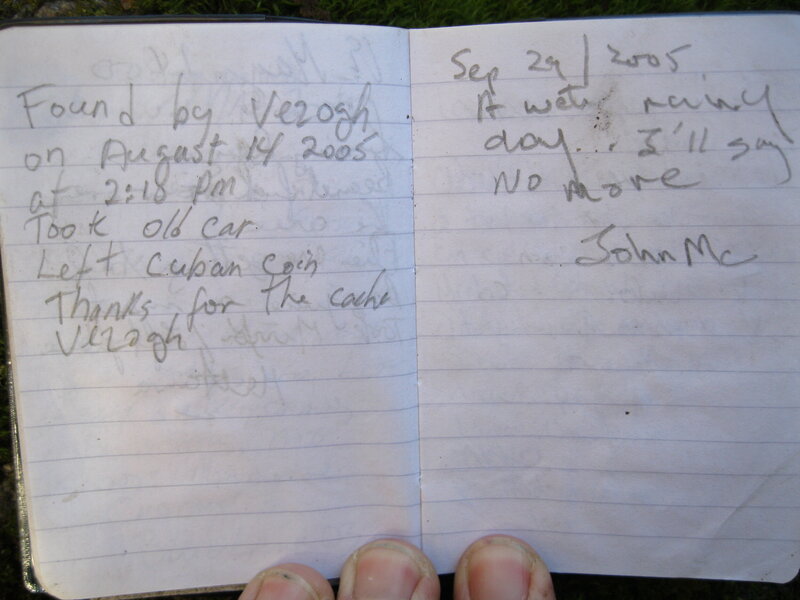 Found by Verogh
on August 14 2005
at 2:18 pm
Took old car.
Left Cuban coin
Thanks for the cache
Verogh
Sep 29/2005
A wet rainy
day... I'll say
No more
John Mc